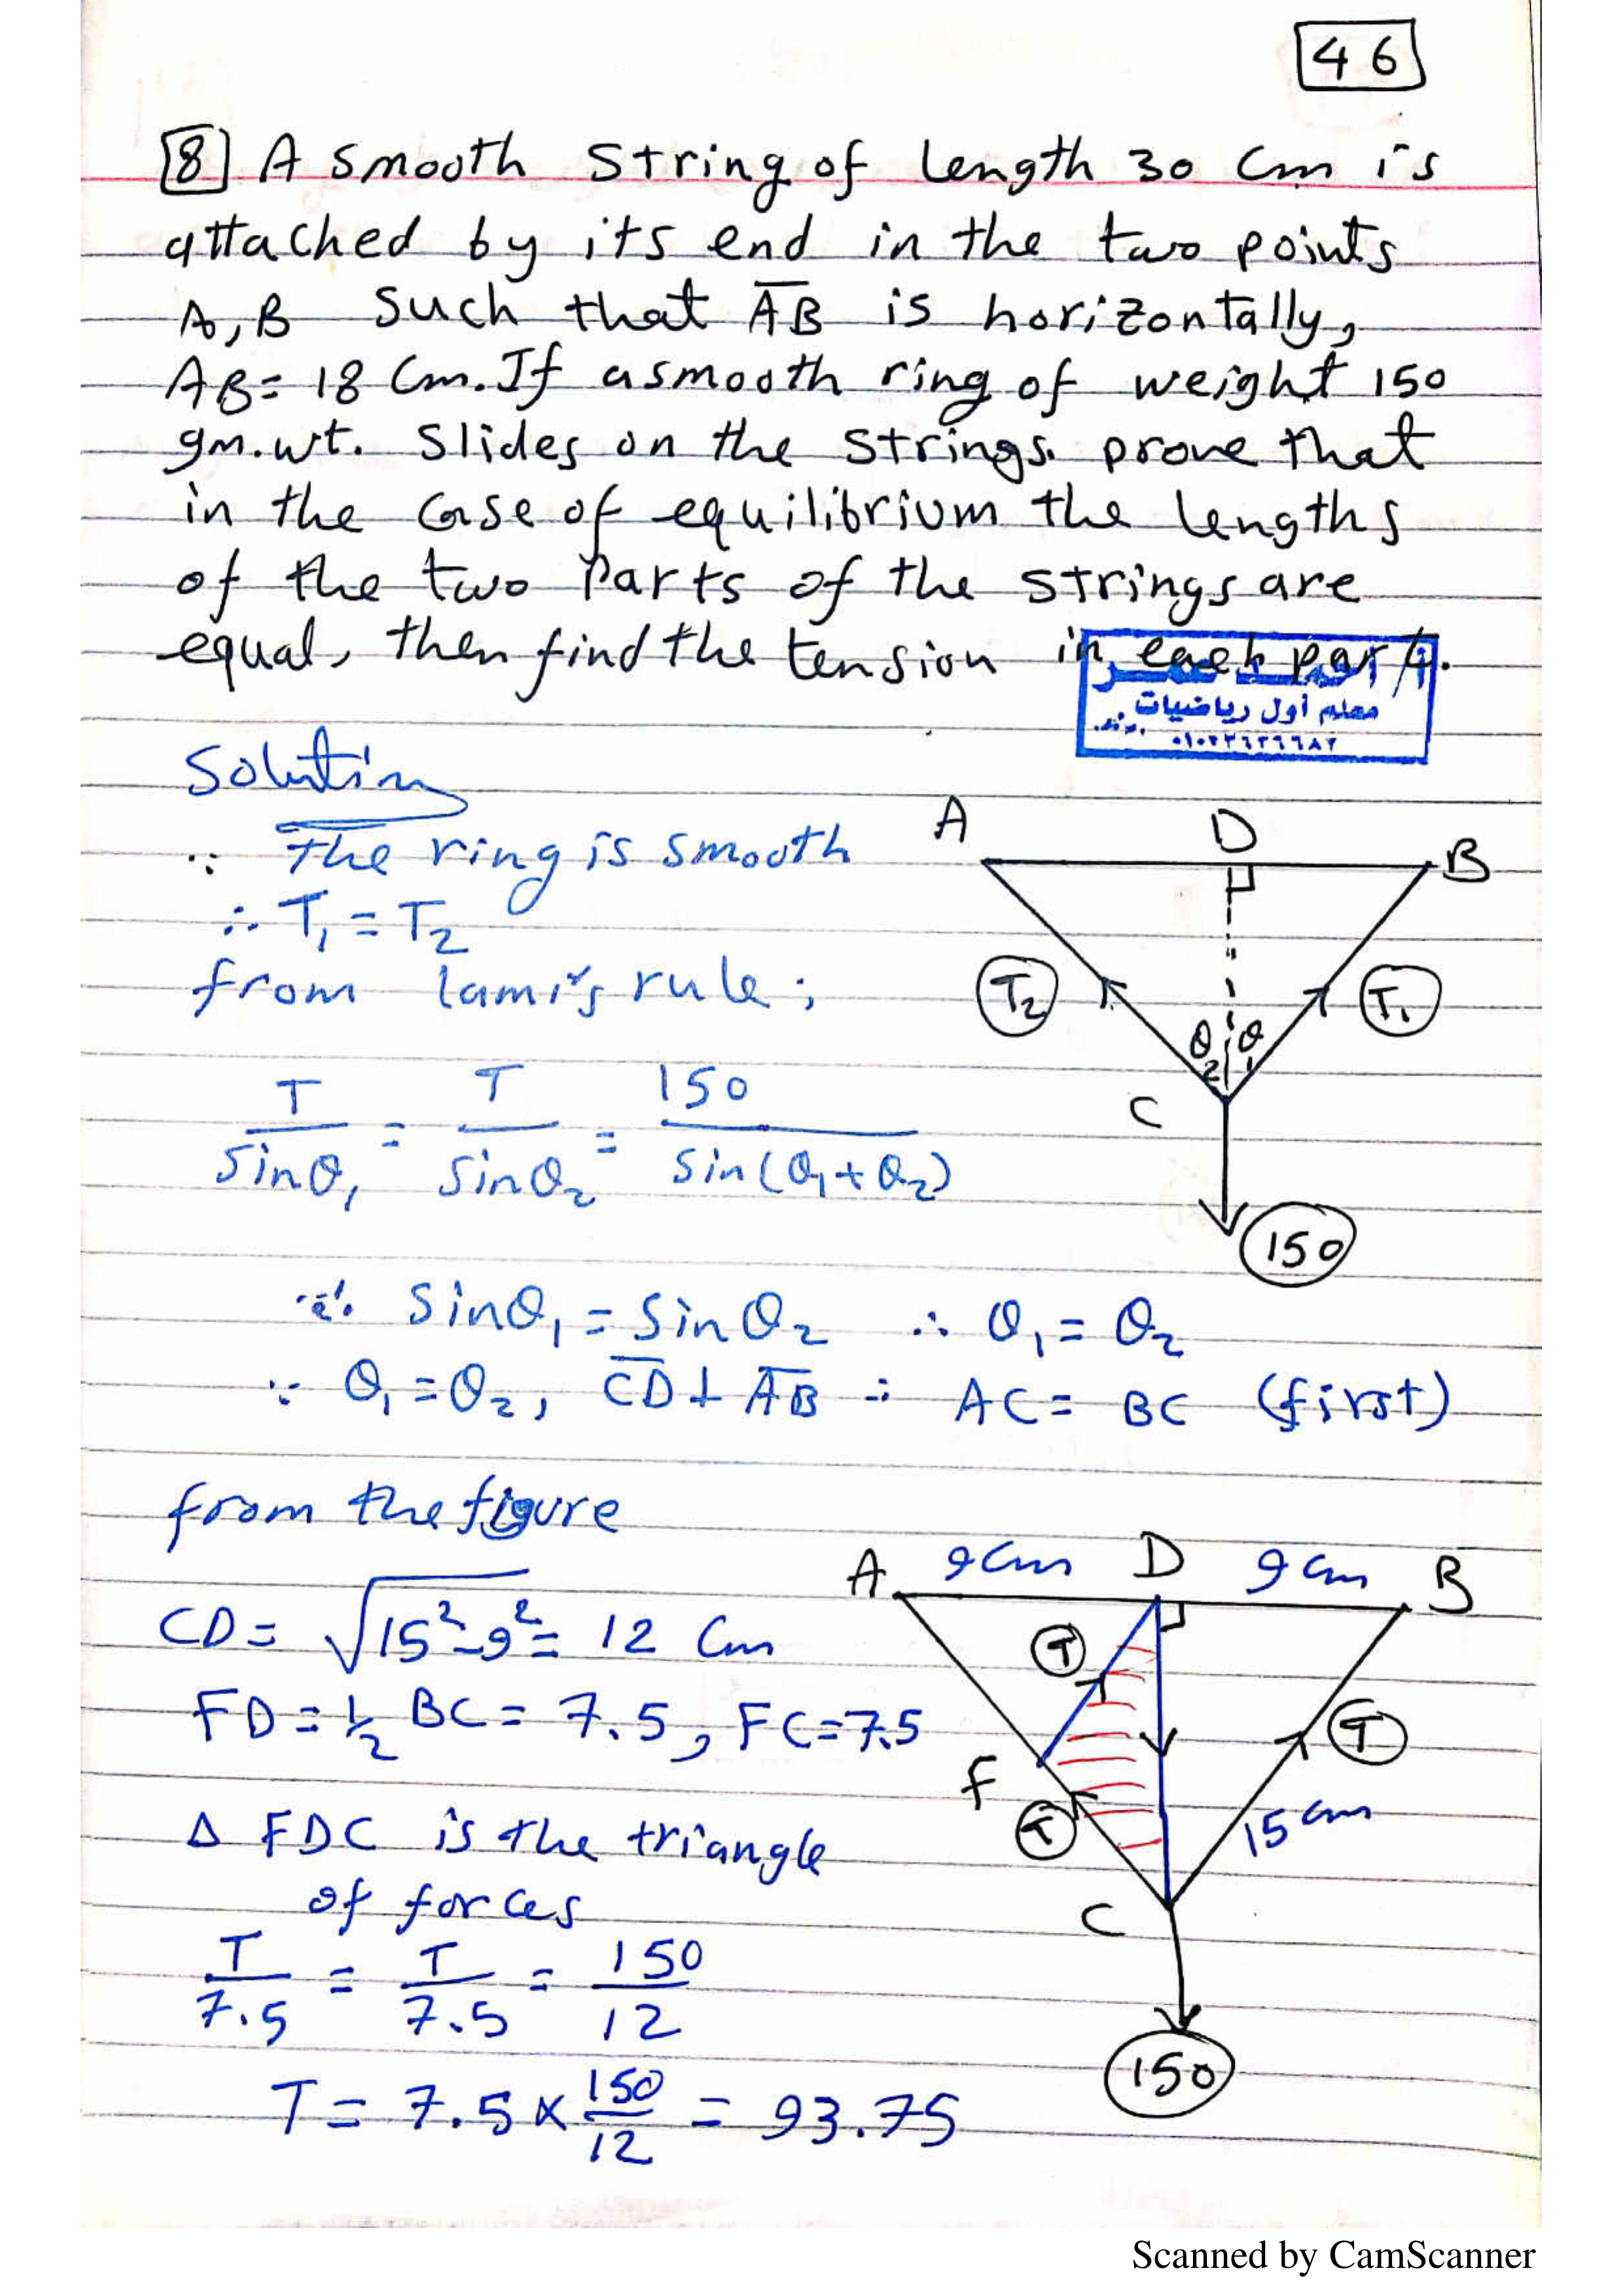 46
8 A smooth string of length 30 cm is
attached by its end in the two points
A, B such that AB is horizontally,
AB = 18 cm. If a smooth ring of weight 150
gm.wt. slides on the strings. prove that
in the case of equilibrium the lengths
of the two parts of the strings are
equal, then find the tension in each part.
معلم أول رياضيات
Solution
∵ The ring is smooth
∴ T₁ = T₂
from lami's rule;
T/sinθ₁ = T/sinθ₂ = 150/sin(θ₁+θ₂)
A D B
T₂ T₁
θ₂ θ₁
C
150
∴ sinθ₁ = sinθ₂ ∴ θ₁ = θ₂
∵ θ₁ = θ₂, CD ⊥ AB ∴ AC = BC (first)
from the figure
CD = √15²-9² = 12 cm
FD = 1/2 BC = 7.5, FC = 7.5
Δ FDC is the triangle
of forces
T/7.5 = T/7.5 = 150/12
T = 7.5 × 150/12 = 93.75
A 9cm D 9cm B
T
T
F
T
15 cm
C
150
Scanned by CamScanner